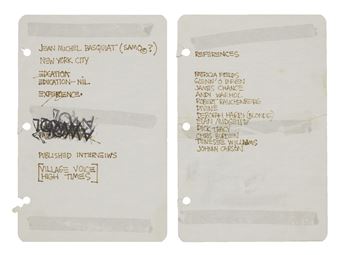 JEAN MICHEL BASQUIAT (SAMO©?)
NEW YORK CITY
EDCATION
EDUCATION-NIL.
EXPERIENCE.
PUBLISHED INTERVIEWS
[VILLAGE VOICE]
[HIGH TIMES]
REFERENCES
PATRICIA FIELDS
GLENN O'BRIEN
JAMES CHANCE
ANDY WARHOL
ROBERT RAUCHENBERG
DIVINE
DEBORAH HARRY (BLONDIE)
STAN
DICK TRACY
CHRIS BURDEN
TENESSEE WILLIAMS
JOHNNY CARSON